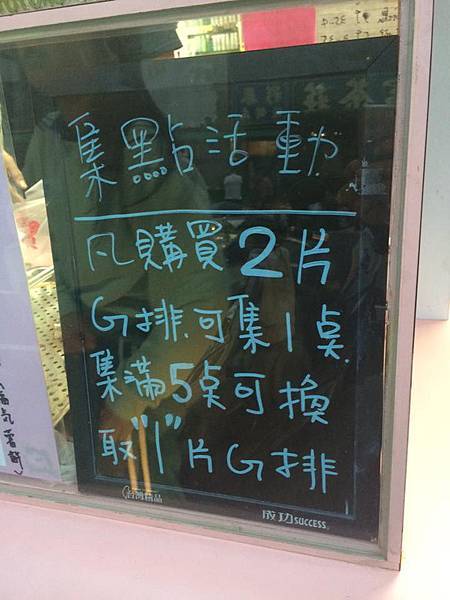 集點活動
凡購買2片
G排.可集1點.
集滿5點可換
取"1"片G排
台灣精品
成功SUCCESS